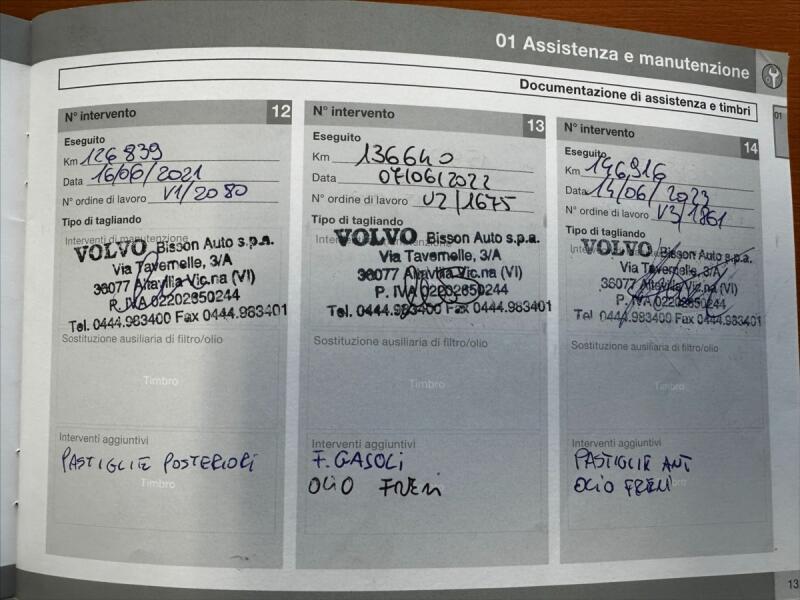 01 Assistenza e manutenzione
Documentazione di assistenza e timbri
01
N° intervento 12
Eseguito
Km 126839
Data 16/06/2021
N° ordine di lavoro V1/2080
Tipo di tagliando
Interventi di manutenzione
VOLVO Bisson Auto s.p.a.
Via Tavernelle, 3/A
36077 Altavilla Vic.na (VI)
P. IVA 02202650244
Tel. 0444.983400 Fax 0444.983401
Sostituzione ausiliaria di filtro/olio
Timbro
Interventi aggiuntivi
PASTIGLIE POSTERIORI
Timbro
N° intervento 13
Eseguito
Km 136640
Data 07/06/2022
N° ordine di lavoro V2/1675
Tipo di tagliando
Interventi di manutenzione
VOLVO Bisson Auto s.p.a.
Via Tavernelle, 3/A
36077 Altavilla Vic.na (VI)
P. IVA 02202650244
Tel. 0444.983400 Fax 0444.983401
Sostituzione ausiliaria di filtro/olio
Timbro
Interventi aggiuntivi
F. GASOLI
OLIO FRENI
N° intervento 14
Eseguito
Km 146916
Data 14/06/2023
N° ordine di lavoro V3/1861
Tipo di tagliando
VOLVO Bisson Auto s.p.a.
Via Tavernelle, 3/A
36077 Altavilla Vic.na (VI)
P. IVA 02202650244
Tel. 0444.983400 Fax 0444.983401
Sostituzione ausiliaria di filtro/olio
Timbro
Interventi aggiuntivi
PASTIGLIE ANT
OLIO FRENI
13